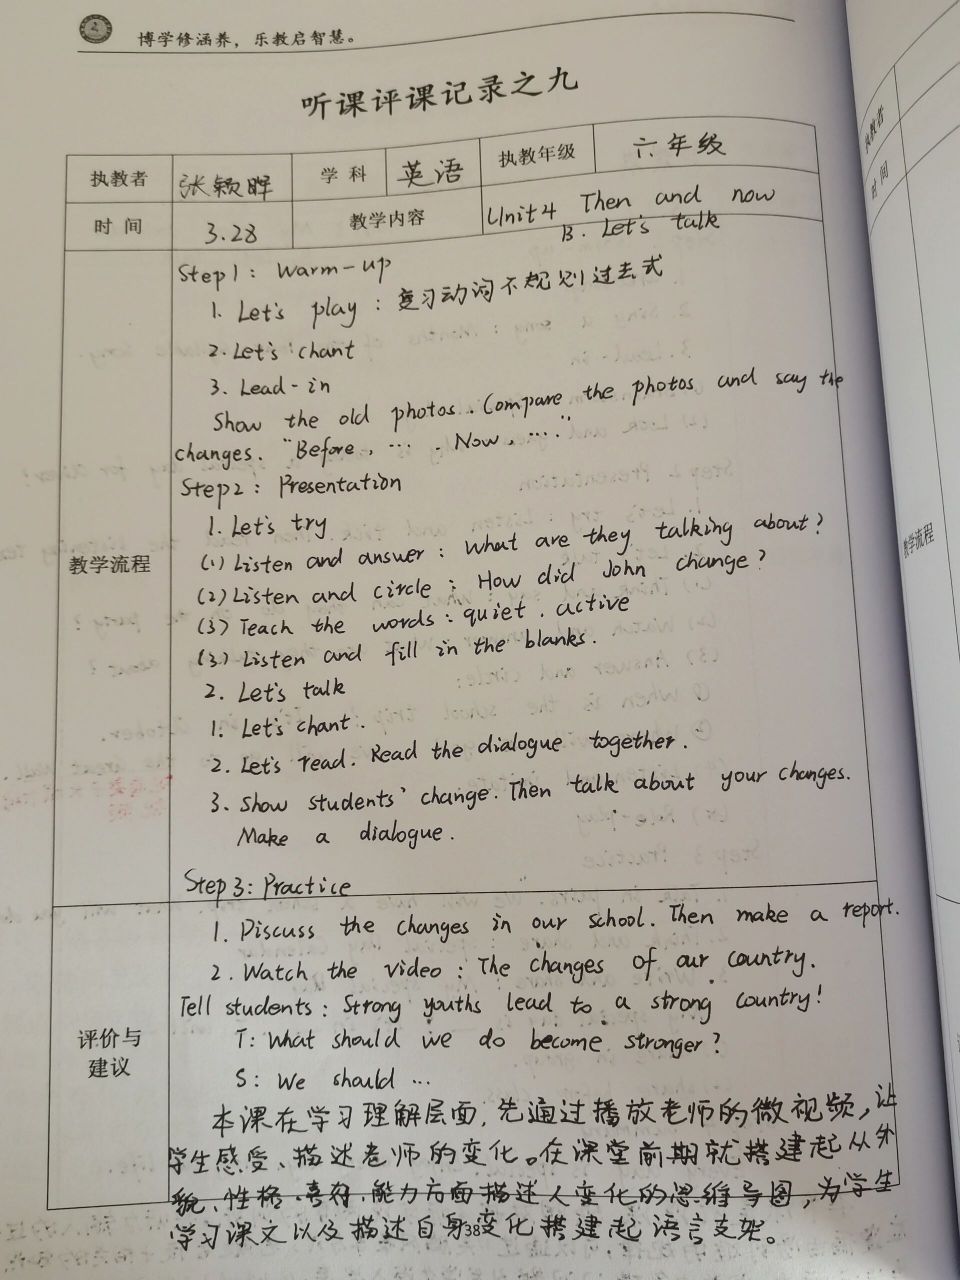 博学修涵养，乐教启智慧。
听课评课记录之九
执教者 张颖晖 学 科 英语 执教年级 六年级
时 间 3.28 教学内容 Unit4 Then and now
B. Let's talk
教学流程
Step1: Warm-up
1. Let's play: 复习动词不规则过去式
2. Let's chant
3. Lead-in
Show the old photos. Compare the photos and say the
changes. "Before, …. Now, …."
Step2: Presentation
1. Let's try
(1) Listen and answer: What are they talking about?
(2) Listen and circle: How did John change?
(3) Teach the words: quiet. active
(3) Listen and fill in the blanks.
2. Let's talk
1. Let's chant.
2. Let's read. Read the dialogue together.
3. Show students' change. Then talk about your changes.
Make a dialogue.
Step3: Practice
评价与
建议
1. Discuss the changes in our school. Then make a report.
2. Watch the video: The changes of our country.
Tell students: Strong youths lead to a strong country!
T: What should we do become stronger?
S: We should …
本课在学习理解层面，先通过播放老师的微视频，让
学生感受、描述老师的变化。在课堂前期就搭建起从外
貌、性格、喜好、能力方面描述人变化的思维导图，为学生
学习课文以及描述自身变化搭建起语言支架。
38
执教者
时 间
教学流程